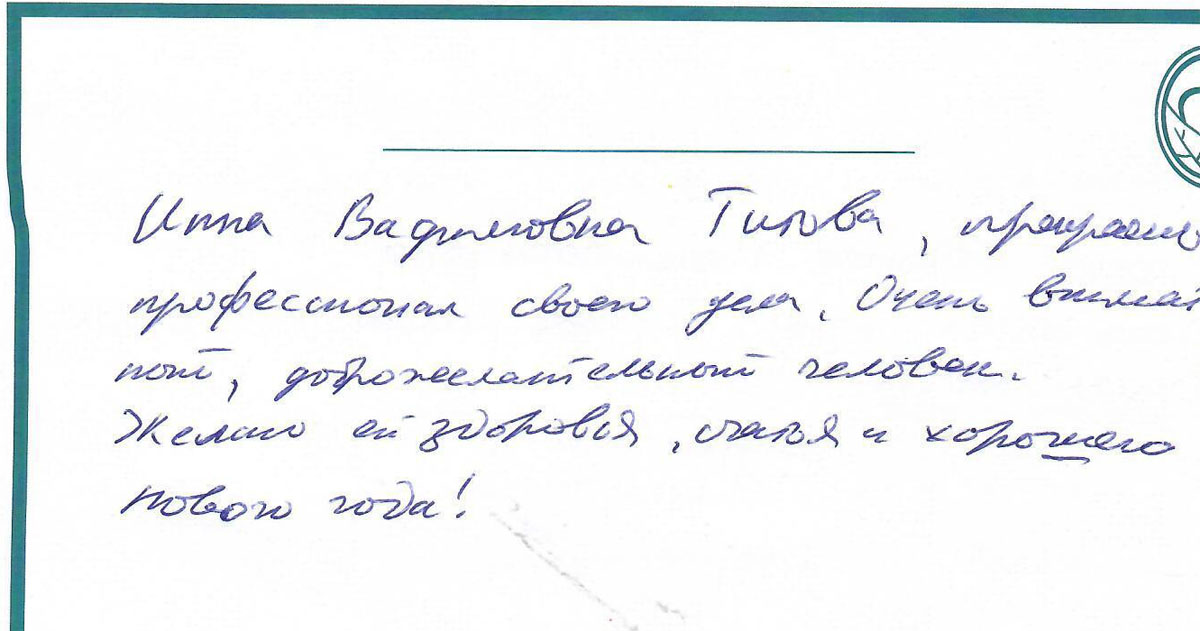 Инна Вадимовна Титова, прекрасно
профессионал своего дела. Очень внимат
ный, доброжелательный человек.
Желаю ей здоровья, счастья и хорошего
нового года!